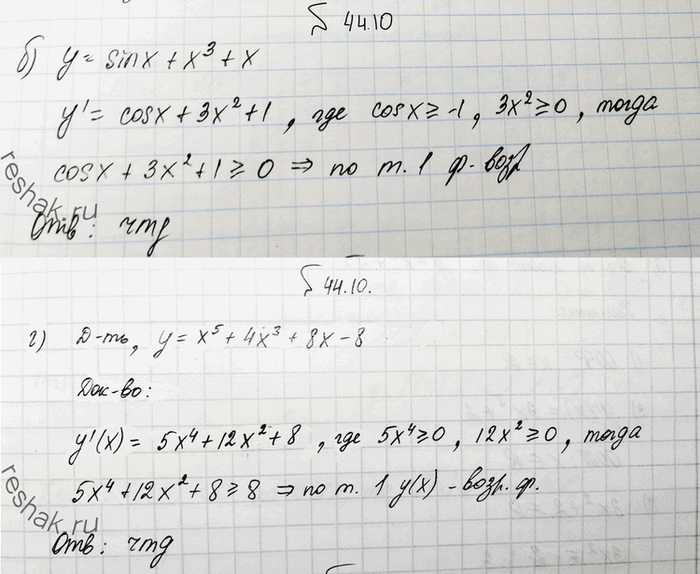 § 44.10
б) y = sinx + x³ + x
y' = cosx + 3x² + 1, где cosx ≥ -1, 3x² ≥ 0, тогда
cosx + 3x² + 1 ≥ 0 ⇒ по т. 1 ф. возр
reshak.ru
Отв: чтд
§ 44.10.
г) Д-ть, y = x⁵ + 4x³ + 8x - 8
Док-во:
y'(x) = 5x⁴ + 12x² + 8, где 5x⁴ ≥ 0, 12x² ≥ 0, тогда
5x⁴ + 12x² + 8 ≥ 8 ⇒ по т. 1 y(x) - возр. ф.
reshak.ru
Отв: чтд